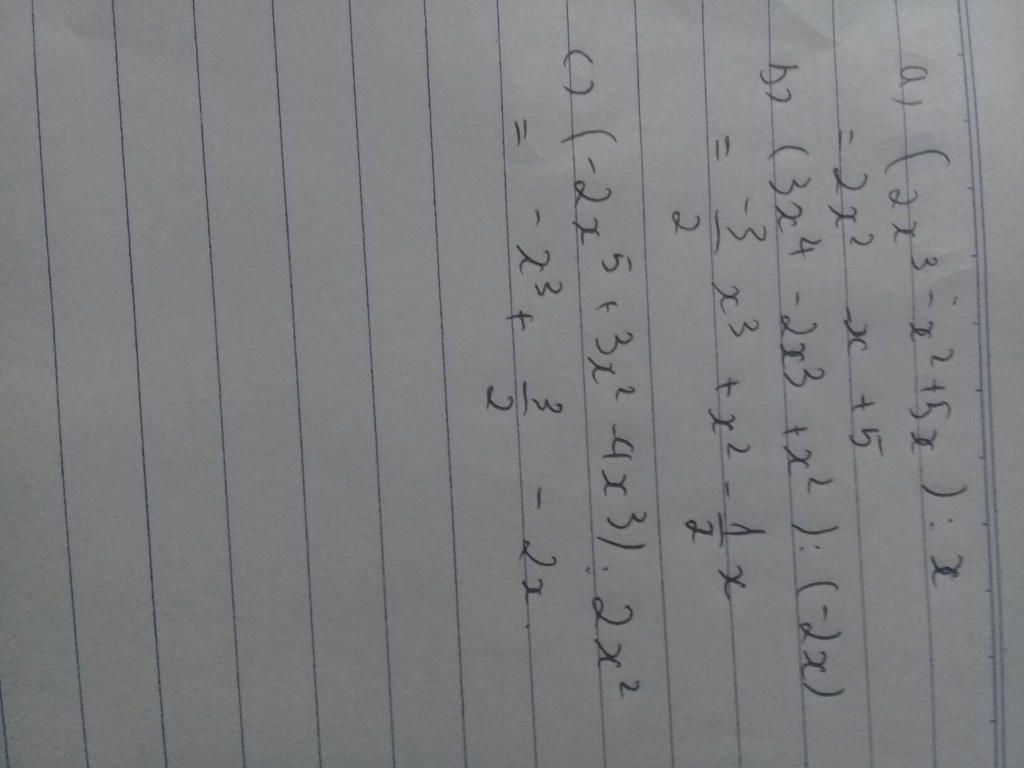 a) (2x³ - x² + 5x) : x
= 2x² - x + 5
b) (3x⁴ - 2x³ + x²) : (-2x)
= \frac{-3}{2} x³ + x² - \frac{1}{2} x
c) (-2x⁵ + 3x² - 4x³) : 2x²
= - x³ + \frac{3}{2} - 2x